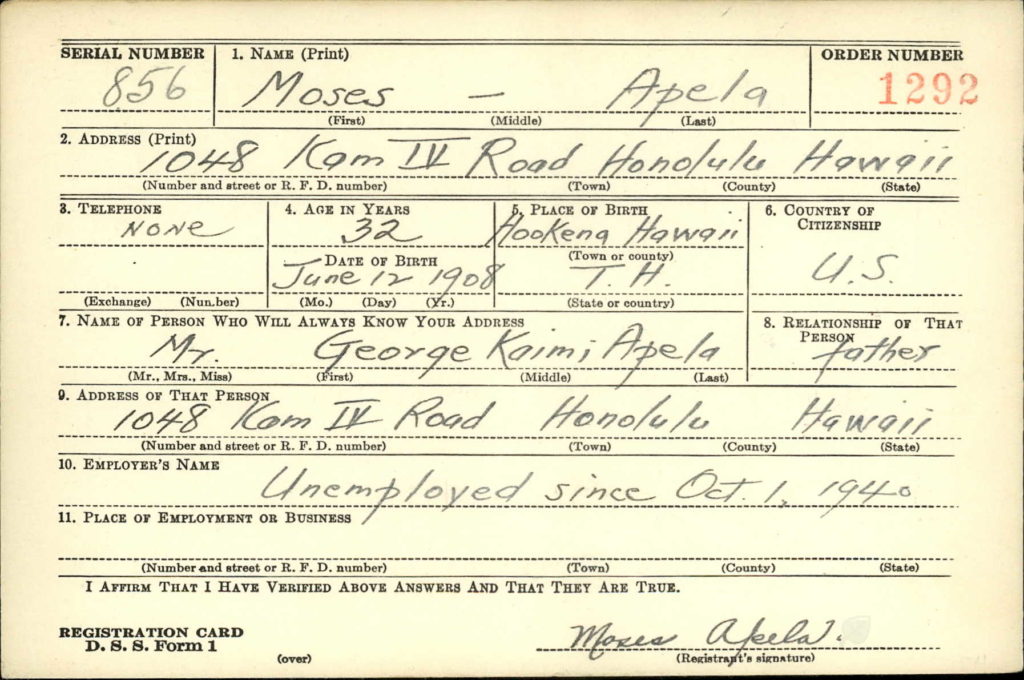 SERIAL NUMBER 1. NAME (Print) ORDER NUMBER
856 Moses — Apela 1292
(First) (Middle) (Last)
2. ADDRESS (Print)
1048 Kam IV Road Honolulu Hawaii
(Number and street or R. F. D. number) (Town) (County) (State)
3. TELEPHONE 4. AGE IN YEARS 5. PLACE OF BIRTH 6. COUNTRY OF CITIZENSHIP
None 32 Hookena Hawaii
(Town or county)
DATE OF BIRTH
June 12 1908 T. H. U.S.
(Exchange) (Number) (Mo.) (Day) (Yr.) (State or country)
7. NAME OF PERSON WHO WILL ALWAYS KNOW YOUR ADDRESS 8. RELATIONSHIP OF THAT PERSON
Mr. George Kaimi Apela father
(Mr., Mrs., Miss) (First) (Middle) (Last)
9. ADDRESS OF THAT PERSON
1048 Kam IV Road Honolulu Hawaii
(Number and street or R. F. D. number) (Town) (County) (State)
10. EMPLOYER'S NAME
Unemployed since Oct. 1, 1940
11. PLACE OF EMPLOYMENT OR BUSINESS
(Number and street or R. F. D. number) (Town) (County) (State)
I AFFIRM THAT I HAVE VERIFIED ABOVE ANSWERS AND THAT THEY ARE TRUE.
REGISTRATION CARD
D. S. S. Form 1 Moses Apela.
(over) (Registrant's signature)